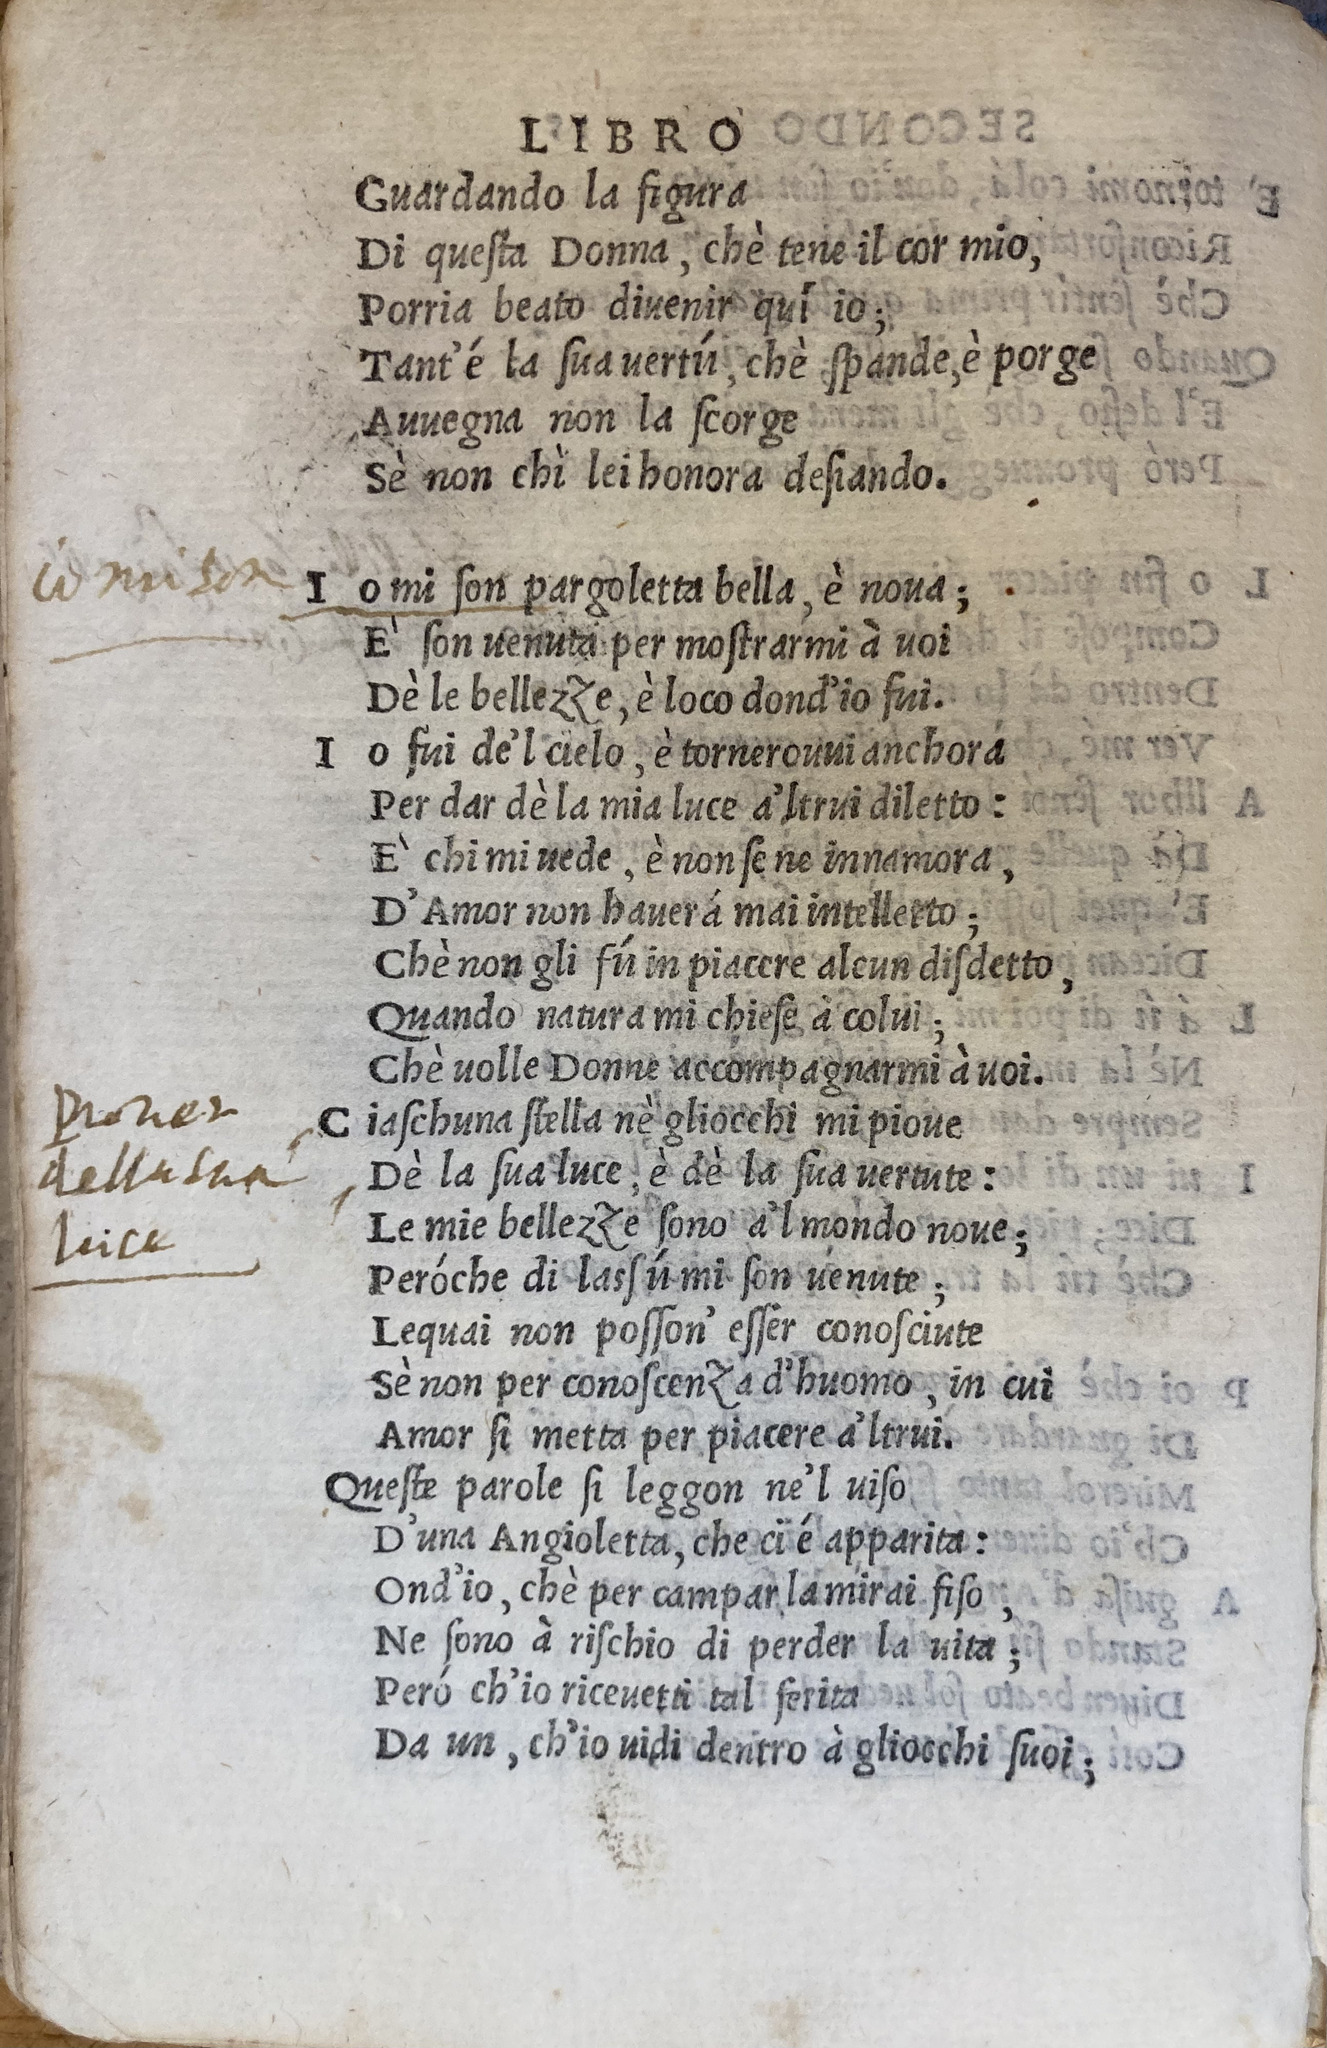 LIBRO
Guardando la figura
Di queſta Donna, chè tene il cor mio,
Porria beato diuenir quí io;
Tant'é la ſua uertú, chè ſpande, è porge
Auuegna non la ſcorge
Sè non chì lei honora deſiando.
io mi son
I o mi ſon pargoletta bella, è noua;
E' ſon uenuta per moſtrarmi à uoi
Dè le bellezze, è loco dond'io fui.
I o fui de'l cielo, è tornerouui anchorá
Per dar dè la mia luce a'ltrui diletto:
E' chi mi uede, è non ſe ne innamora,
D'Amor non hauerá mai intelletto;
Chè non gli fú in piacere alcun diſdetto,
Quando natura mi chieſe à colui;
Chè uolle Donne accompagnarmi à uoi.
C iaſchuna ſtella nè gliocchi mi pioue
della sua
luce
Dè la ſua luce, è dè la ſua uertute:
Le mie bellezze ſono a'l mondo noue;
Peróche di laſſú mi ſon uenute;
Lequai non poſſon' eſſer conoſciute
Sè non per conoſcenza d'huomo, in cui
Amor ſi metta per piacere a'ltrui.
Queſte parole ſi leggon ne'l uiſo
D'una Angioletta, che ci é apparita:
Ond'io, chè per campar la mirai fiſo,
Ne ſono à riſchio di perder la uita;
Peró ch'io riceuetti tal ferita
Da un, ch'io uidi dentro à gliocchi ſuoi;